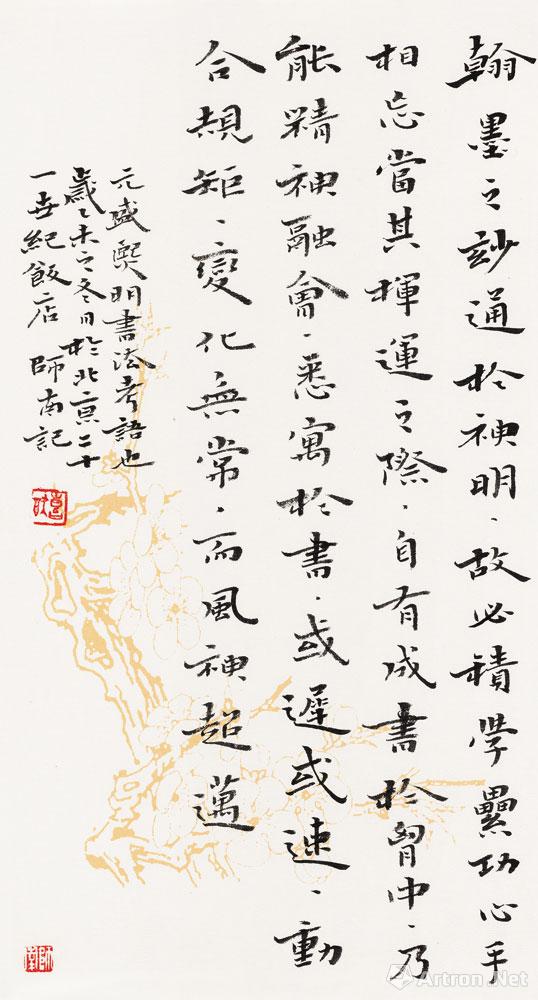 翰墨之玅通於神明、故必積學纍功心手
相忘當其揮運之際、自有成書於胷中、乃
能精神融會、悉寓於書、或遲或速、動
合規矩、變化無常、而風神超邁
元盛熙明書法考語也
歲乙未之冬日於北京二十
一世紀飯店 師南記
師南
Artron.Net